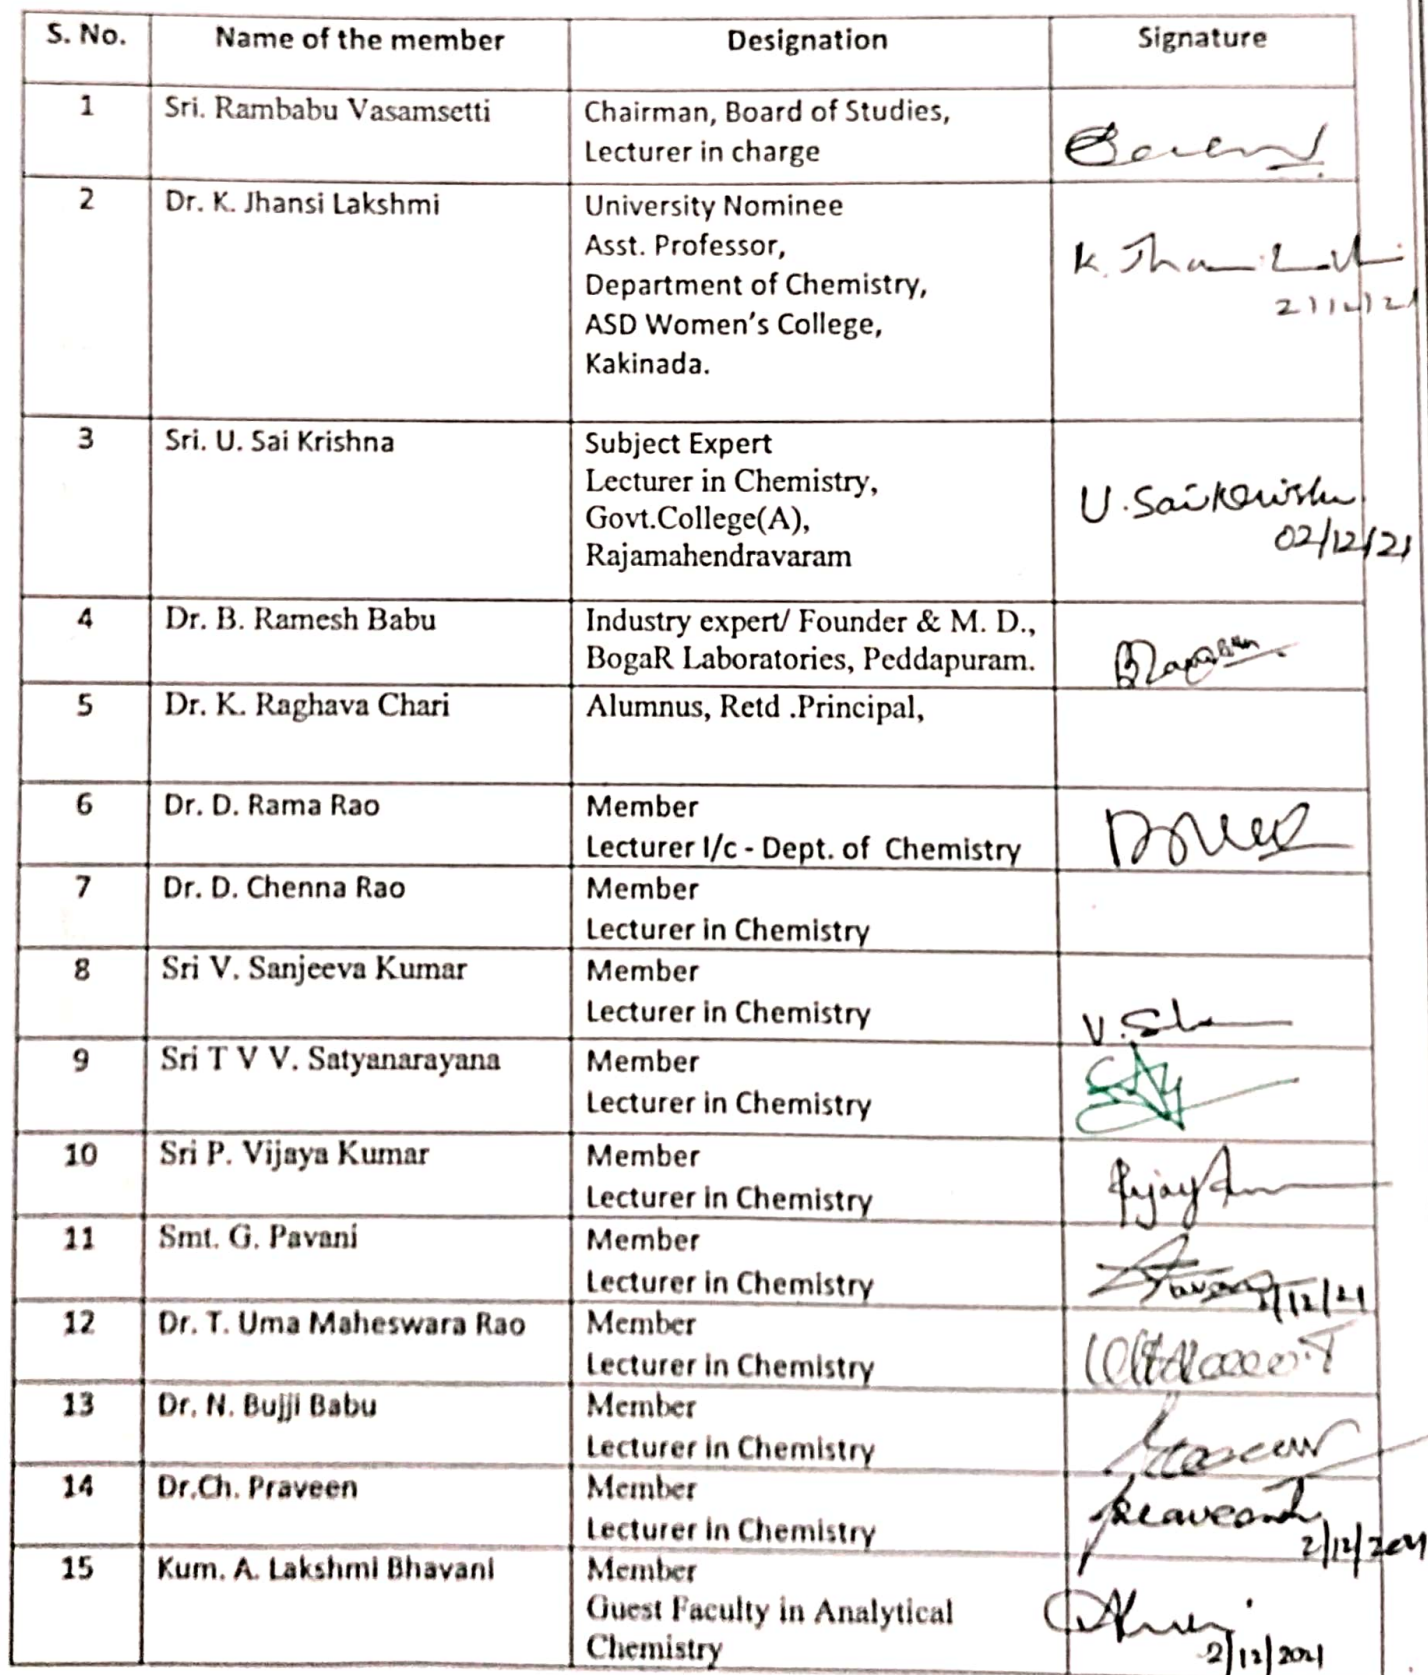 S. No. Name of the member Designation Signature
1 Sri. Rambabu Vasamsetti Chairman, Board of Studies,
Lecturer in charge
2 Dr. K. Jhansi Lakshmi University Nominee
Asst. Professor,
Department of Chemistry,
ASD Women's College,
Kakinada.
K. Jhan
2/12/21
3 Sri. U. Sai Krishna Subject Expert
Lecturer in Chemistry,
Govt.College(A),
Rajamahendravaram
U. Saikrishna
02/12/21
4 Dr. B. Ramesh Babu Industry expert/ Founder & M. D.,
BogaR Laboratories, Peddapuram.
5 Dr. K. Raghava Chari Alumnus, Retd .Principal,
6 Dr. D. Rama Rao Member
Lecturer I/c - Dept. of Chemistry
7 Dr. D. Chenna Rao Member
Lecturer in Chemistry
8 Sri V. Sanjeeva Kumar Member
Lecturer in Chemistry
9 Sri T V V. Satyanarayana Member
Lecturer in Chemistry
10 Sri P. Vijaya Kumar Member
Lecturer in Chemistry
11 Smt. G. Pavani Member
Lecturer in Chemistry
2/12/21
12 Dr. T. Uma Maheswara Rao Member
Lecturer in Chemistry
13 Dr. N. Bujji Babu Member
Lecturer in Chemistry
14 Dr.Ch. Praveen Member
Lecturer in Chemistry
2/12/2021
15 Kum. A. Lakshmi Bhavani Member
Guest Faculty in Analytical
Chemistry
2/12/2021